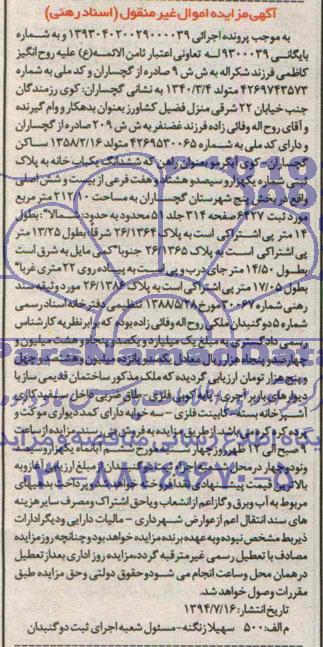 آگهی مزایده اموال غیر منقول (اسناد رهنی)
به موجب پرونده اجرائی ۱۳۹۳۰۴۰۲۰۰۲۹۰۰۰۰۳۹ و به شماره
بایگانی ۹۳۰۰۰۳۹ له تعاونی اعتبار ثامن الائمه(ع) علیه روح انگیز
کاظمی فرزند شکراله به ش ش ۹ صادره از گچساران و کد ملی به شماره
۴۲۶۹۷۴۳۵۷۳ متولد ۱۳۴۰/۳/۴ به نشانی گچساران: کوی رزمندگان
جنب خیابان ۲۲ شرقی منزل فضیل کشاورز بعنوان بدهکار و وام گیرنده
و آقای روح اله وفائی زاده فرزند غضنفر به ش ش ۲۰۹ صادره از گچساران
و دارای کد ملی به شماره ۴۲۶۹۵۳۰۰۶۵ متولد ۱۳۵۸/۲/۱۶ ساکن
گچساران- کوی آبگرمو بعنوان راهن که ششدانگ یکباب خانه به پلاک
ثبتی شماره یکهزار و سیصد و هشتاد و هفت فرعی از بیست و شش اصلی
واقع در بخش پنج شهرستان گچساران به مساحت ۲۱۲/۱۰ متر مربع
مورد ثبت ۶۴۲۷ صفحه ۳۱۴ جلد ۵۱ محدود به حدود: شمالا": بطول
۱۴ متر پی اشتراکی است به پلاک ۲۶/۱۳۶۴ شرقا بطول ۱۳/۲۵ متر
پی اشتراکی است به پلاک ۲۶/۱۳۶۵ جنوبا" کمی مایل به شرق است
بطول ۱۴/۵۰ متر جای درب و پی است به پیاده روی ۲۲ متری غربا"
بطول ۱۷/۰۵ متر پی اشتراکی است به پلاک ۲۶/۱۳۸۶ مورد وثیقه سند
رهنی شماره ۳۰۰۶۷ مورخ ۱۳۸۸/۵/۲۸ تنظیمی دفترخانه اسناد رسمی
شماره ۵ دوگنبدان ملکی روح اله وفائی زاده بوده که برابر نظریه کارشناس
رسمی دادگستری به مبلغ یک میلیارد و یکصد و پنجاه و هشت میلیون و
چهارصد و پنجاه هزار ریال معادل یکصد و پانزده میلیون و هشتصد و چهل
و پنج هزار تومان ارزیابی گردیده که ملک مذکور ساختمان قدیمی ساز با
دیوارهای باربر آجری با تیرکوبی فلزی- طاق ضربی داخل سفیدکاری
آشپزخانه بسته- کابینت فلزی - سه خوابه دارای کمد دیواری موکت و
پرده کرکره می باشد از طریق مزایده به فروش می رسد. مزایده از ساعت
۹ صبح الی ۱۲ ظهر روز چهارشنبه مورخ ششم آبانماه یکهزار و سیصد
و نود و چهار در محل شعبه اجرا ثبت دوگنبدان از مبلغ ارزیابی آغاز و به
بالاترین قیمت پیشنهادی نقدا فروخته خواهد شد و پرداخت بدهی های
مربوط به آب و برق و گاز اعم از انشعاب و یا حق اشتراک و مصرف سایر هزینه
های سند انتقال اعم از عوارض شهرداری - مالیات دارایی و دیگر ادارات
ذیربط مشخص نبوده و به عهده برنده مزایده خواهد بود و چنانچه روز مزایده
مصادف با تعطیل رسمی غیر مترقبه گردد، مزایده روز اداری بعد از تعطیل
در همان محل و ساعت انجام می شود و حقوق دولتی و حق مزایده طبق
مقررات وصول خواهد شد.
تاریخ انتشار: ۱۳۹۴/۷/۱۶
م الف: ۵۰۰ سهیلا زنگنه- مسئول شعبه اجرای ثبت دوگنبدان
پایگاه اطلاع رسانی مناقصه و مزایده
۰۲۱-۸۸۳۴۹۶۷۰-۵